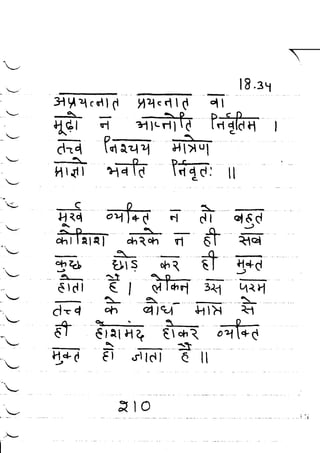 18.34
अप्रयत्नात प्रयत्नात वा
मूढो न आप्नोति निर्वृतिम ।
तत्त्व निश्चय मात्रेण
प्राज्ञो भवति निर्वृतः ॥
मूरख व्यक्ति न तो बहुत
कोशिश करके न ही सब
कुछ छोड़ कर ही मुक्त
होता है । लेकिन उस परम
तत्त्व के बोध मात्र से
ही होशमंद होकर व्यक्ति
मुक्त हो जाता है ॥
२10